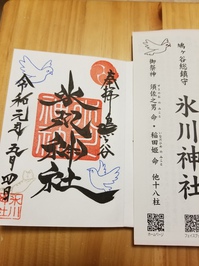 奉拝
鳩ヶ谷
氷川神社
令和元年五月四日
鳩ヶ谷総鎮守
氷川神社
御祭神
須佐之男命・稲田姫命
他十八柱